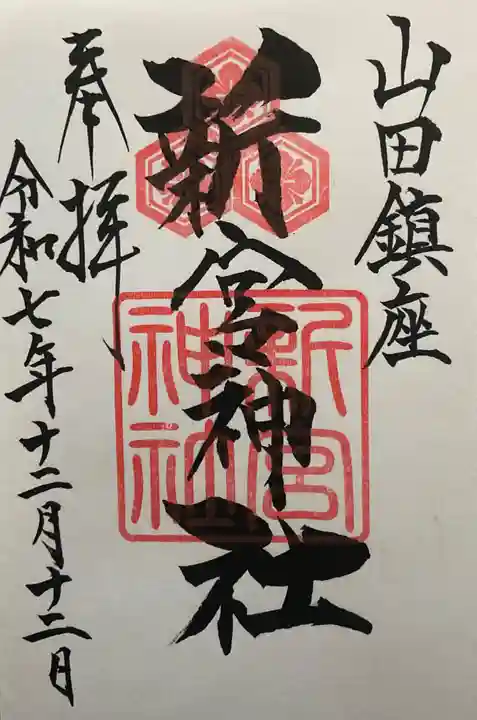 山田鎮座
新宮神社
新宮神社
奉拝
令和七年十二月十二日